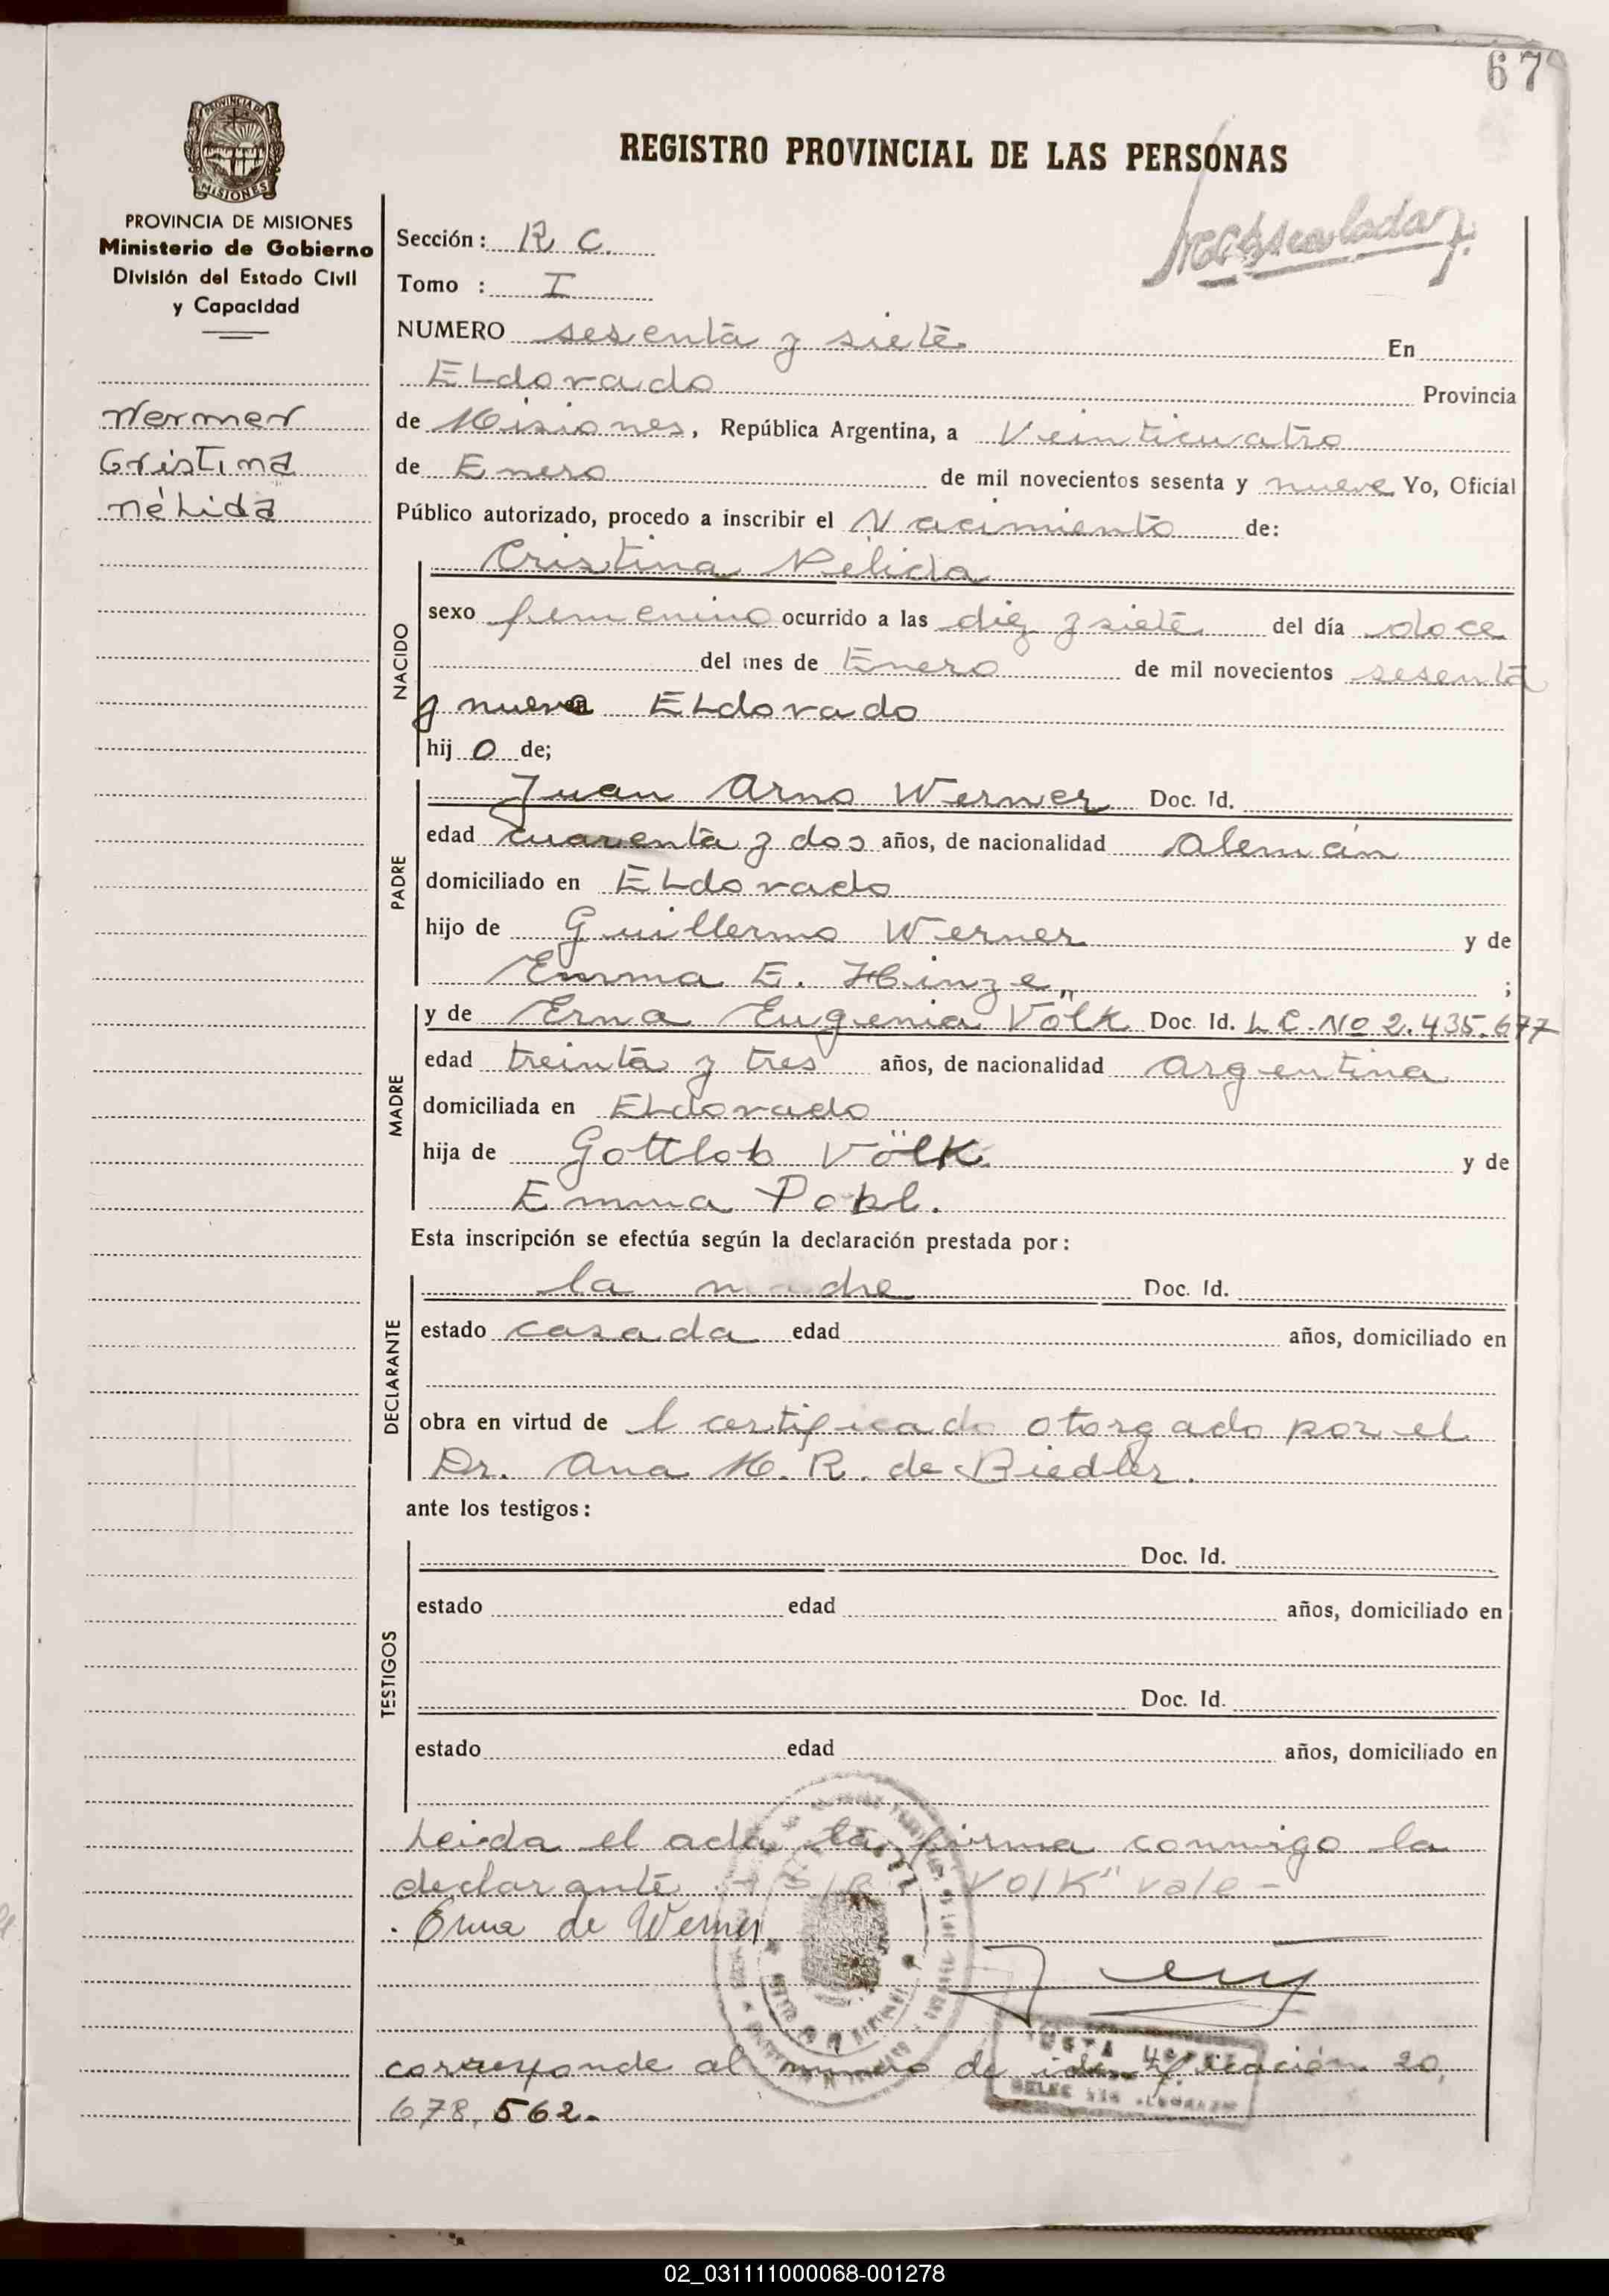 67
PROVINCIA DE
MISIONES
REGISTRO PROVINCIAL DE LAS PERSONAS
PROVINCIA DE MISIONES
Ministerio de Gobierno
División del Estado Civil
y Capacidad
Werner
Cristina
nélida
Sección: R C.
Tomo : I
NUMERO sesenta y siete En
ELdorado Provincia
de Misiones, República Argentina, a Veinticuatro
de Enero de mil novecientos sesenta y nueve Yo, Oficial
Público autorizado, procedo a inscribir el Nacimiento de:
Cristina Nélida
NACIDO
sexo femenino ocurrido a las diez y siete del día doce
del mes de Enero de mil novecientos sesenta
y nueve ELdorado
hij o de;
PADRE
Juan Arno Werner Doc. Id.
edad cuarenta y dos años, de nacionalidad Alemán
domiciliado en ELdorado
hijo de Guillermo Werner y de
Emma E. Hinze ;
MADRE
y de Erna Eugenia Völk Doc. Id. L C. No 2.435.677
edad treinta y tres años, de nacionalidad Argentina
domiciliada en ELdorado
hija de Gottlob Völk. y de
Emma Popl.
Esta inscripción se efectúa según la declaración prestada por:
DECLARANTE
la madre Doc. Id.
estado casada edad años, domiciliado en
obra en virtud de l certificado otorgado por el
Dr. Ana M. R. de Biedler.
ante los testigos:
TESTIGOS
Doc. Id.
estado edad años, domiciliado en
Doc. Id.
estado edad años, domiciliado en
Leida el acta la firma conmigo la
declarante VolK" vale -
Erna de Werner
corresponde al numero de identificación 20,
678,562.
02_031111000068-001278